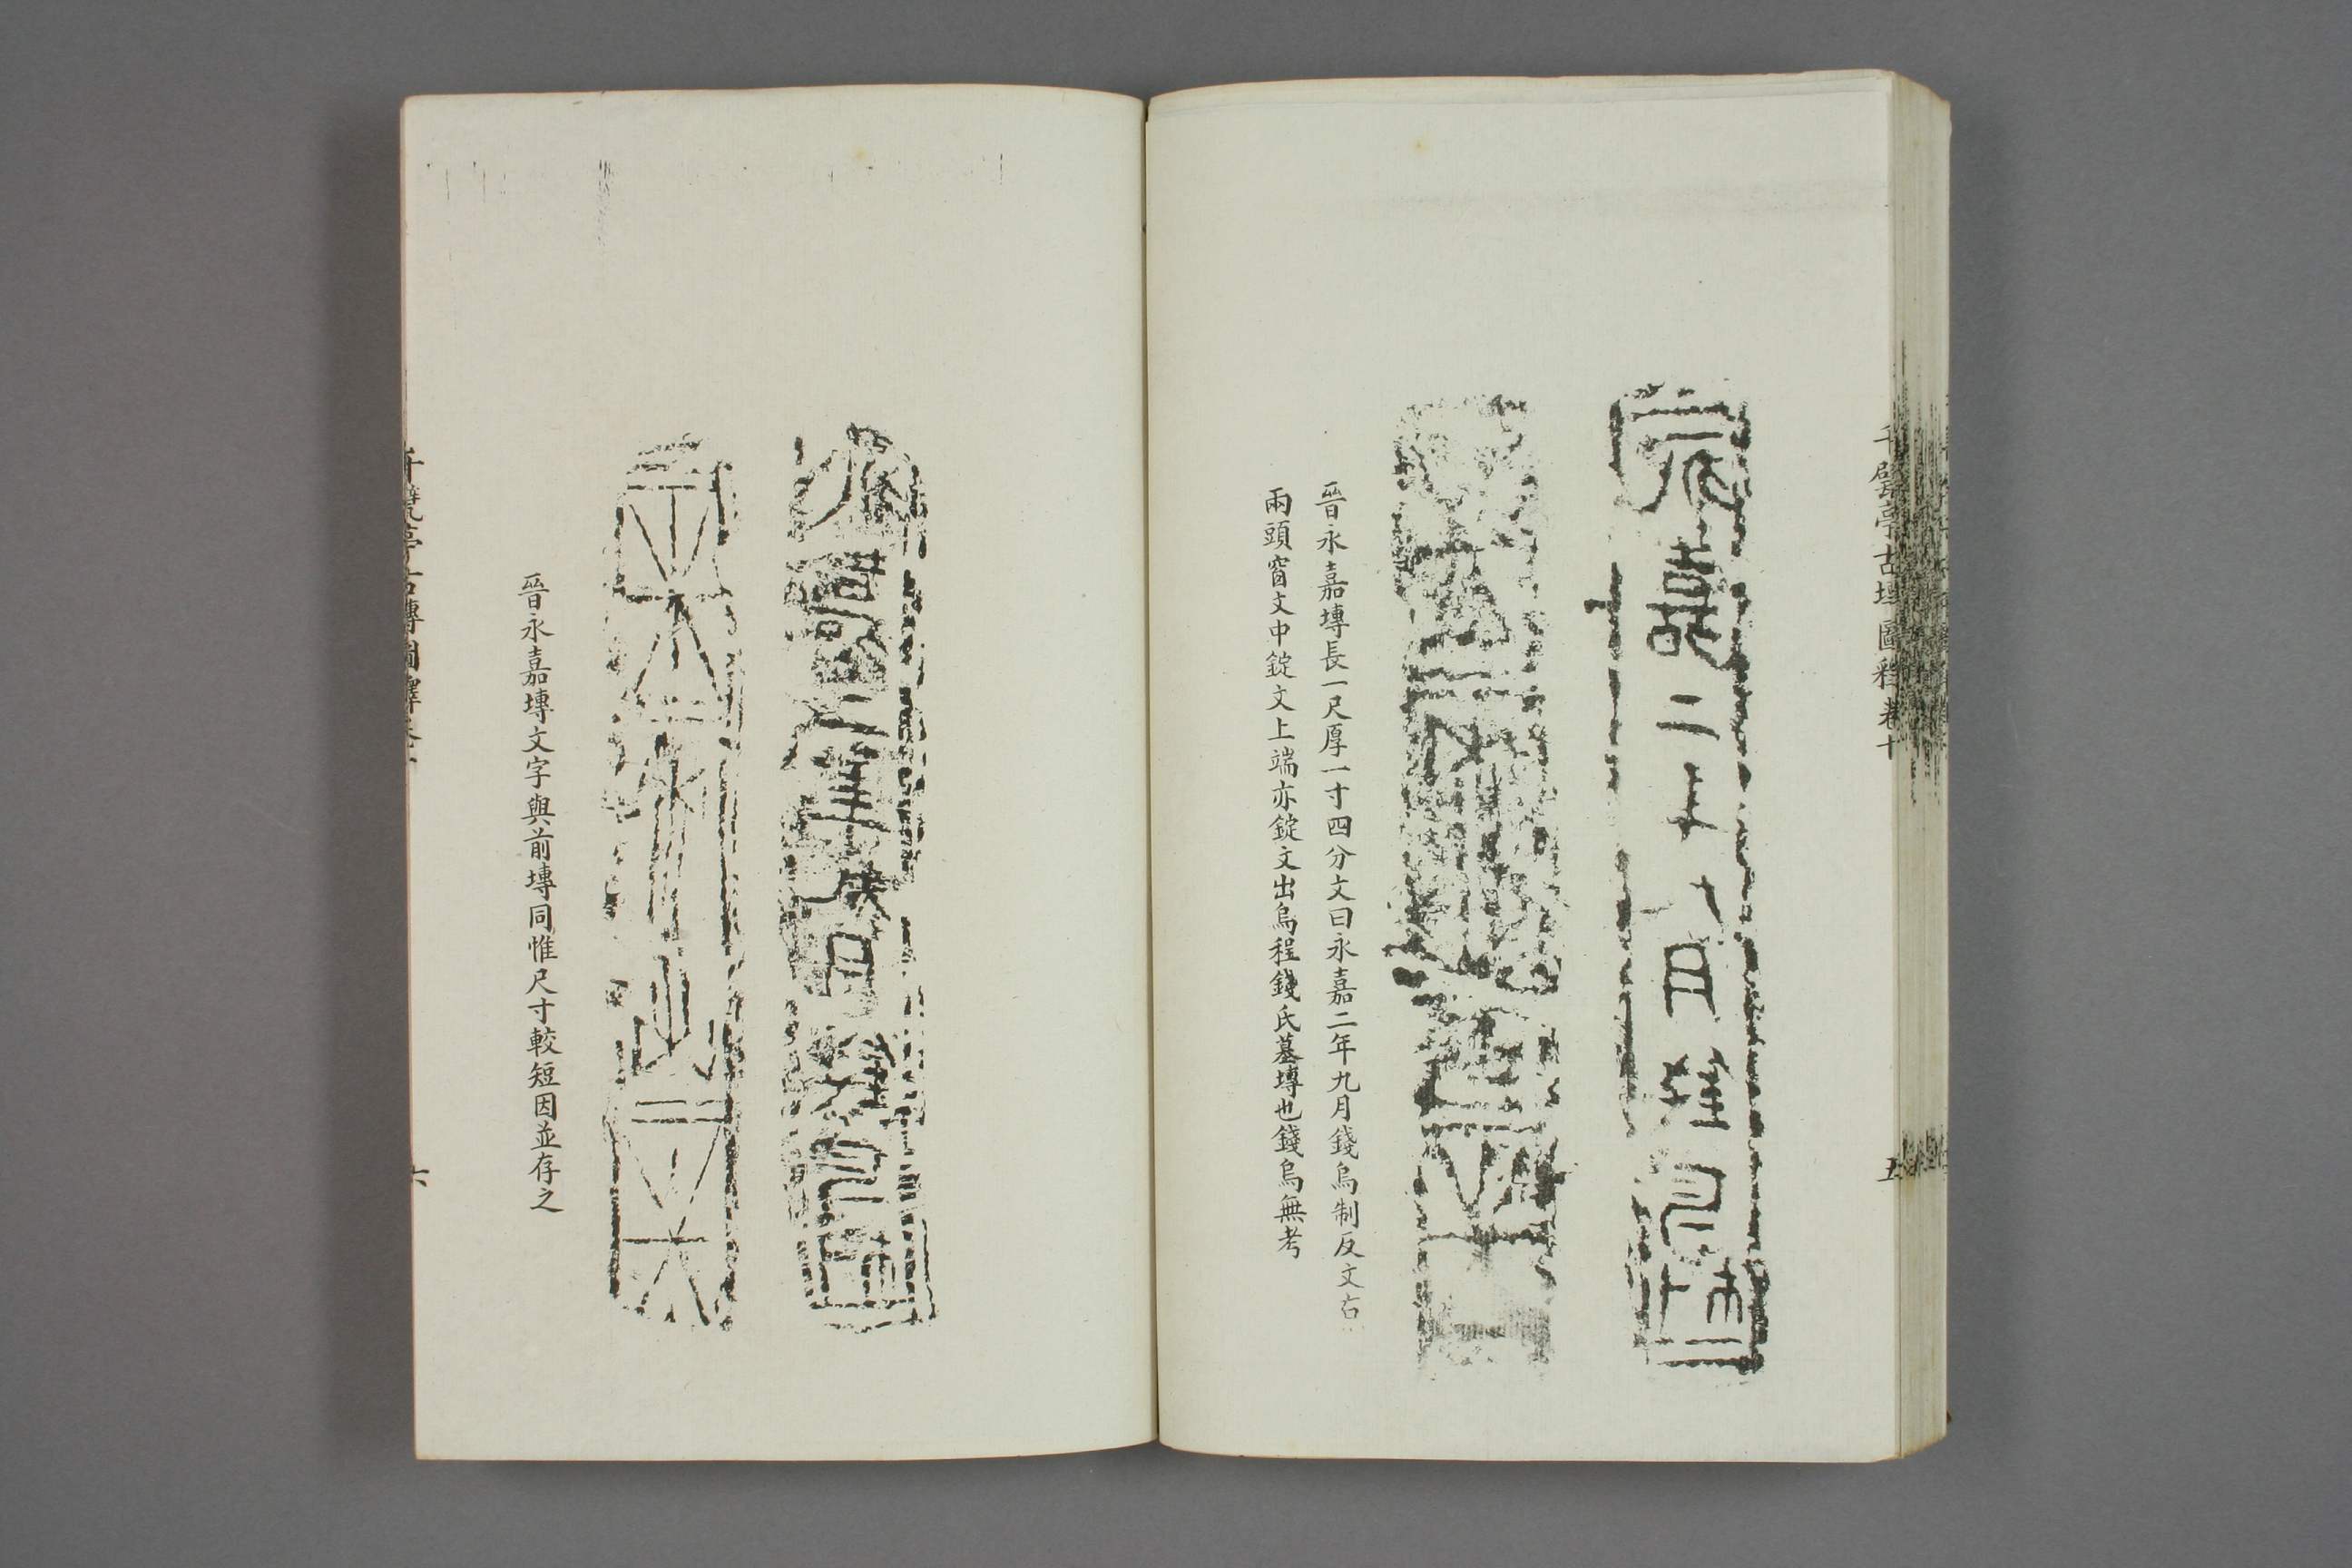 永嘉二年九月錢烏制
晉永嘉塼長一尺厚一寸四分文曰永嘉二年九月錢烏制反文右
兩頭窗文中錠文上端亦錠文出烏程錢氏墓塼也錢烏無考
永嘉二年九月錢烏制
晉永嘉塼文字與前塼同惟尺寸較短因並存之
千甓亭古塼圖釋卷十
五
六